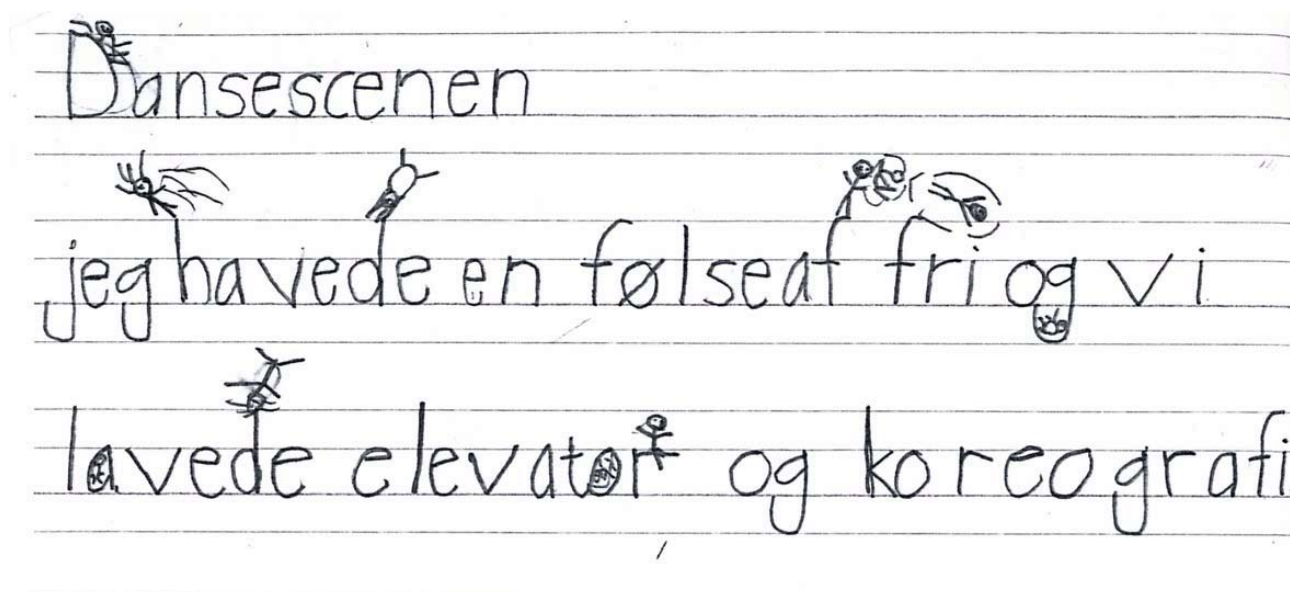 Dansescenen
jeg havede en følse af fri og vi
lavede elevator og koreografi